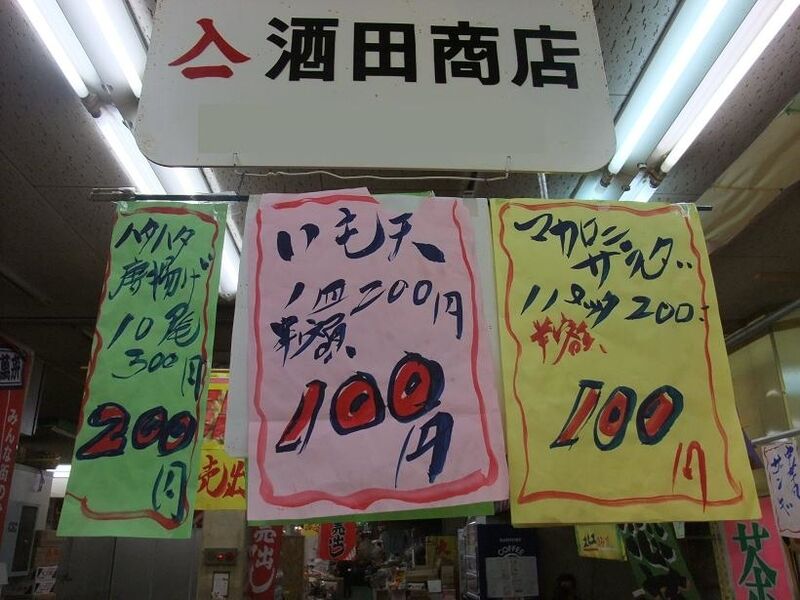 酒田商店
ハタハタ
唐揚げ
10尾
300円
200円
いも天
1皿200円
半額
100円
マカロニ
サラダ
1パック200
半額
100円
売出
売出し
COFFEE
茶